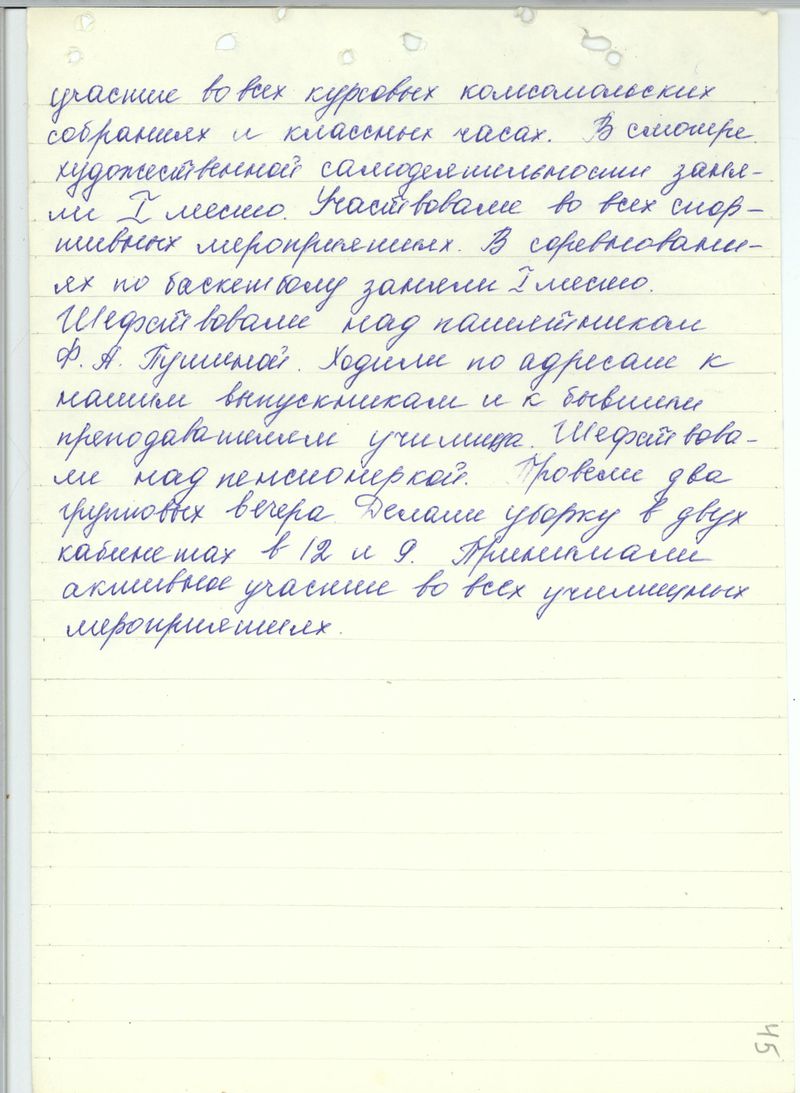 участие во всех курсовых комсомольских
собраниях и классных часах. В смотре
художественной самодеятельности заня-
ли I место. Участвовали во всех спор-
тивных мероприятиях. В соревновани-
ях по баскетболу заняли I место.
Шефствовали над памятником
Ф. А. Пушиной. Ходили по адресам к
нашим выпускникам и к бывшим
преподавателям училища. Шефствова-
ли над пенсионеркой. Провели два
групповых вечера. Делали уборку в двух
кабинетах в 12 и 9. Принимали
активное участие во всех училищных
мероприятиях.
45